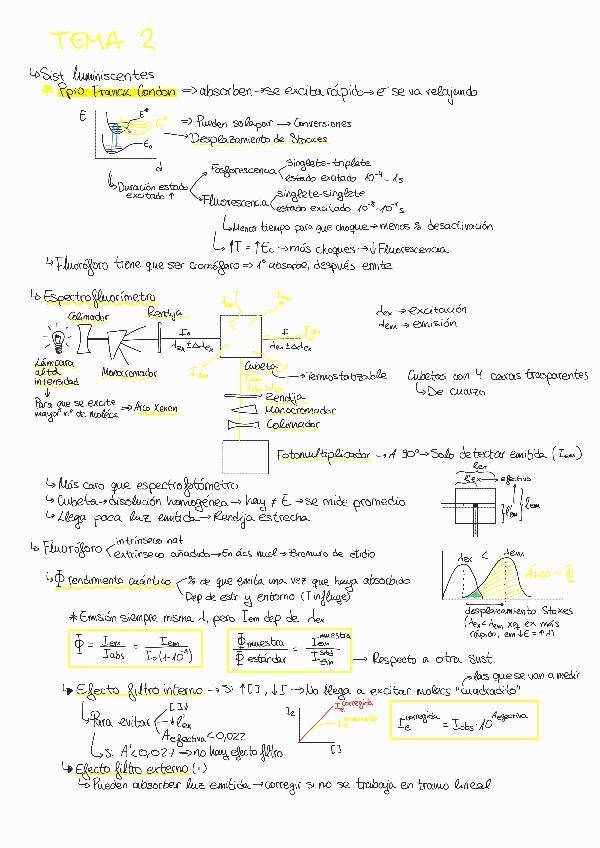 TEMA 2
↳ Sist luminiscentes
* Ppio Franck Condon => absorben → se excita rápido → e⁻ se va relajando
E
E*
E₀
d
=> Pueden solapar → Conversiones
Desplazamiento de Stockes
Duración estado excitado ↑
Fosforescencia
singlete-triplete
estado excitado 10⁻⁴ - 1s
Fluorescencia
singlete-singlete
estado excitado
↳ Menos tiempo para que choque → menos % desactivación
↳ ↑T = ↑Ec → más choques → ↓ Fluorescencia
↳ Fluoróforo tiene que ser cromóforo => 1º absorbe, después emite
↳ Espectrofluorímetro
Colimador
Rendija
I₀
λex ± Δλex
Iem
I
λex ± Δλex
λex → excitación
λem → emisión
Lámpara
alta
intensidad
Monocromador
Cubeta
→ Termostatizable
Cubetas con 4 caras trasparentes
↳ De cuarzo
Para que se excite
mayor nº de molécs
=> Arco Xenon
Rendija
Monocromador
Colimador
Fotomultiplicador → A 90º → Solo detectar emitida (Iem)
↳ Más caro que espectrofotómetro
↳ Cubeta → disolución homogénea → hay ≠ E → se mide promedio
↳ Llega poca luz emitida → Rendija estrecha
lex
l'ex → efectivo
l'em
lem
↳ Fluoróforo
intrínseco nat
extrínseco añadido → En ács nucl → Bromuro de etidio
↳ Φ rendimiento cuántico
% de que emita una vez que haya absorbido
Dep de estr y entorno (T influye)
λex < λem
Área → Φ
desplazamiento Stokes
(λex < λem xq ex más
rápido, em ↓E = ↑λ)
* Emsión siempre misma λ, pero Iem dep de λex
Φ = Iem / Iabs = Iem / I₀(1-10⁻ᴬ)
Φ muestra / Φ estándar = Iem muestra / Iem std
→ Respecto a otra sust.
↳ las que se van a medir
↳ Efecto filtro interno → Si ↑[ ], ↓I → No llega a excitar molécs "cuadradito"
Para evitar
[ ]↓
↓l'ex
A efectiva < 0,027
↳ Si A' < 0,027 → no hay efecto filtro
Ie
Ie corregida
[ ]
Ie corregida = Iobs · 10^A efectiva
↳ Efecto filtro externo (·)
↳ Pueden absorber luz emitida → corregir si no se trabaja en tramo lineal